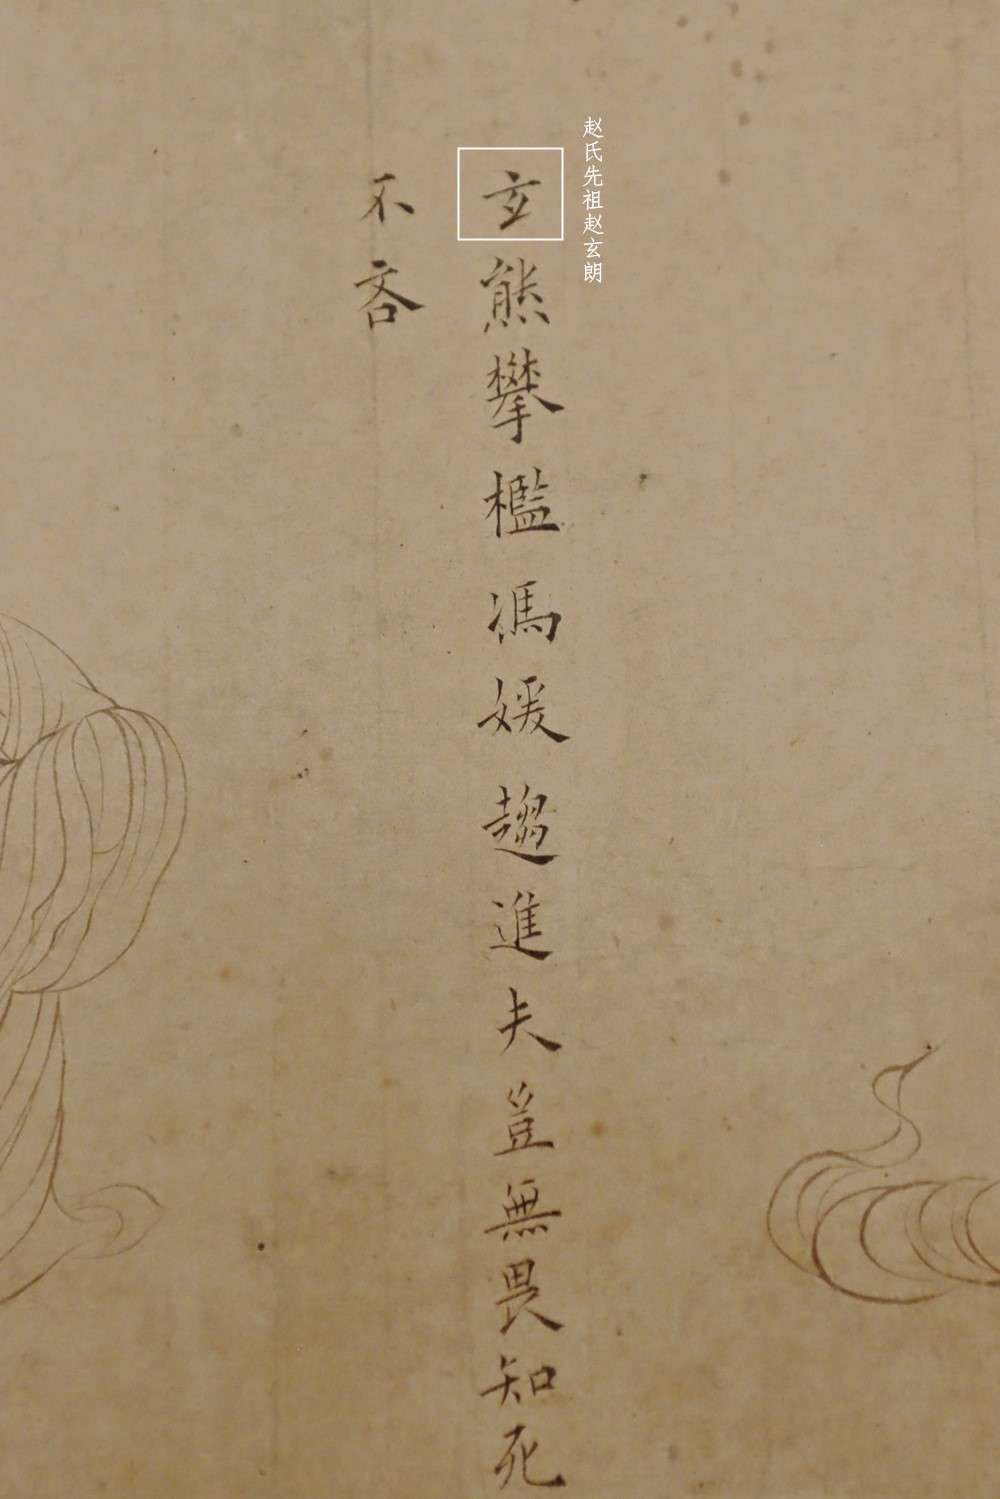 赵氏先祖赵玄朗
玄熊攀檻馮媛趨進夫豈無畏知死
不吝